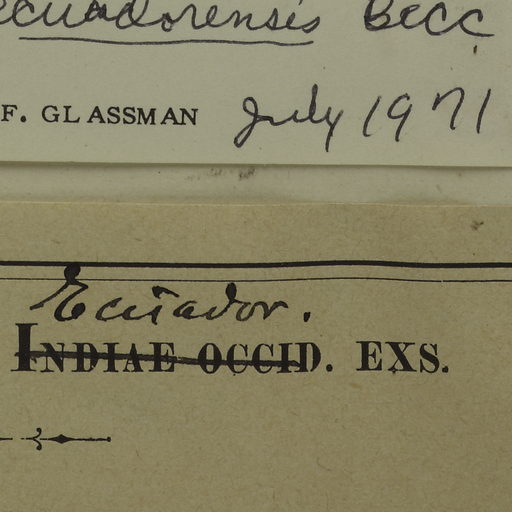 ecuadorensis Becc.
F. GLASSMAN July 1971
Ecuador.
INDIAE OCCID. EXS.